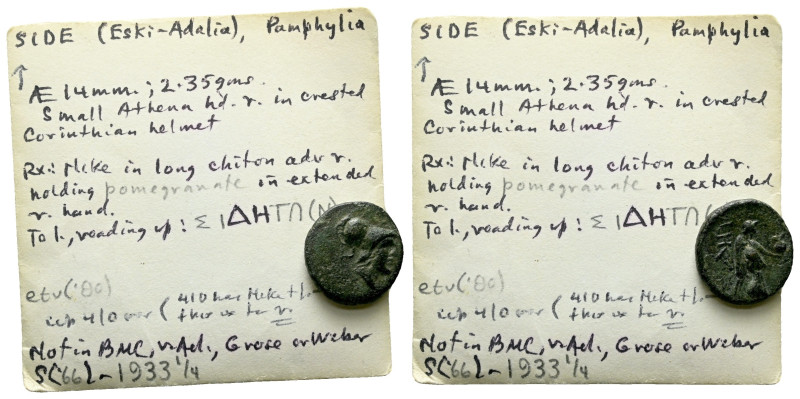 SIDE (Eski-Adalia), Pamphylia
↑ Æ 14mm.; 2.35gms.
Small Athena hd. r. in crested
Corinthian helmet
Rx: Nike in long chiton adv r.
holding pomegranate in extended
r. hand.
To l., reading up: Σ ΙΔΗΤΩ(Ν)
etv('80)
410 has Nike
Not in BMC, v.Aul., Grose or Weber
S('66)-1933 1/4
SIDE (Eski-Adalia), Pamphylia
↑ Æ 14mm.; 2.35gms.
Small Athena hd. r. in crested
Corinthian helmet
Rx: Nike in long chiton adv r.
holding pomegranate in extended
r. hand.
To l., reading up: Σ ΙΔΗΤΩ(
etv('80)
410 has Nike
Not in BMC, v.Aul., Grose or Weber
S('66)-1933 1/4